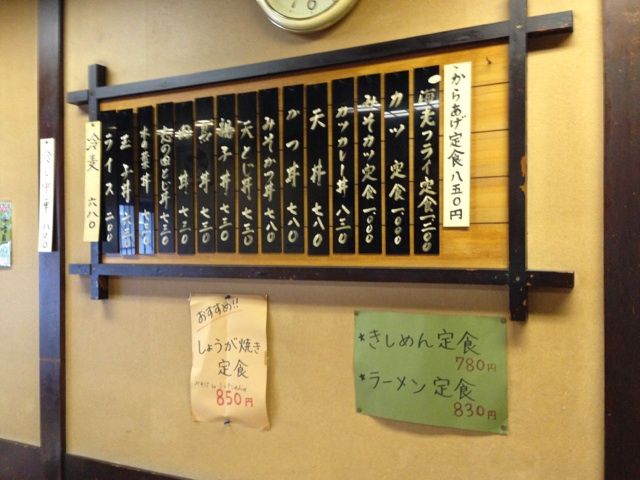 からあげ定食 八五〇円
海老フライ定食 一二〇〇
カツ定食 一〇〇〇
みそカツ定食 一〇〇〇
カツカレー丼 八三〇
天丼 七八〇
かつ丼 七八〇
みそかつ丼 七八〇
天とじ丼 七三〇
親子丼 七三〇
丼 七三〇
丼 七三〇
とじ丼 七三〇
木の葉丼 七三〇
玉子丼 六三〇
ライス 二〇〇
冷麦 六八〇
おすすめ!!
しょうが焼き
定食
850円
*きしめん定食
780円
*ラーメン定食
830円